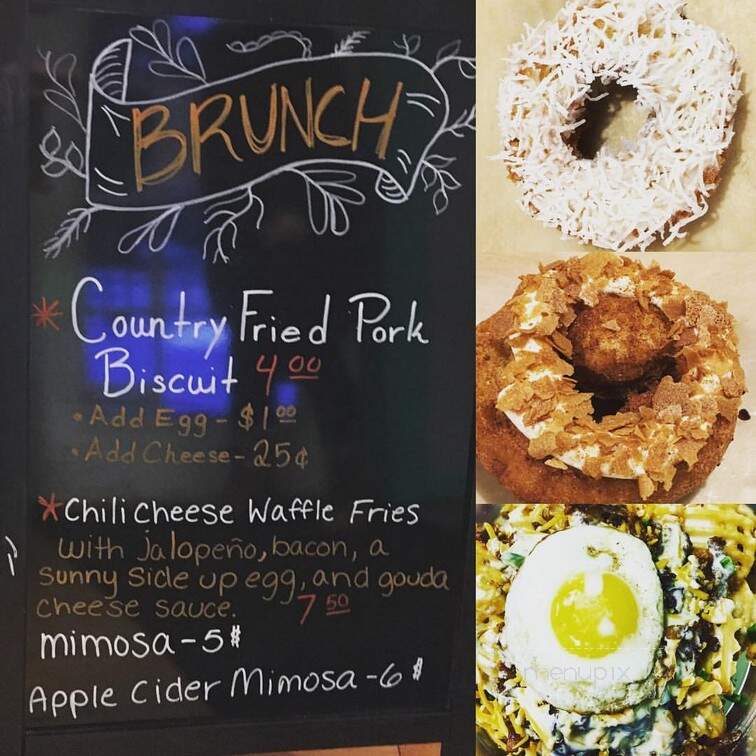 BRUNCH
* Country Fried Pork
Biscuit 4 00
• Add Egg - $1 00
• Add Cheese - 25¢
*Chili Cheese Waffle Fries
with jalopeño, bacon, a
sunny side up egg, and gouda
cheese sauce. 7 50
mimosa - 5$
Apple Cider Mimosa - 6$
menupix